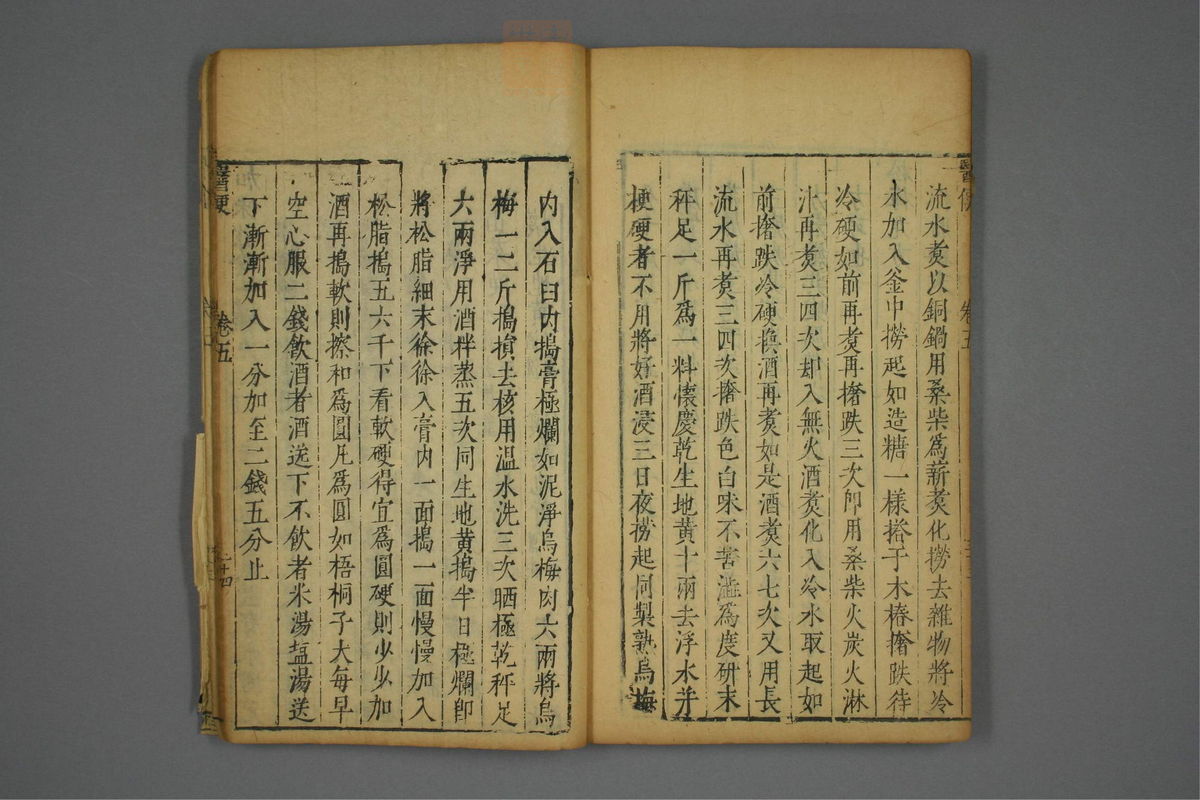 醫便
卷五
流水煑以銅鍋用桑柴為薪煑化撈去雜物將冷
水加入釜中撈起如造糖一樣搭于木樁撦跌待
冷硬如前再煑再撦跌三次即用桑柴火炭火淋
汁再煑三四次却入無火酒煑化入冷水取起如
前撦跌冷硬換酒再煑如是酒煑六七次又用長
流水再煑三四次撦跌色白味不苦澁為度研末
秤足一斤為一料懷慶乾生地黄十兩去浮水并
梗硬者不用將好酒浸三日夜撈起同製熟烏梅
内入石臼内搗膏極爛如泥淨烏梅肉六兩將烏
梅一二斤搗損去核用温水洗三次晒極乾秤足
六兩淨用酒拌蒸五次同生地黄搗半日極爛卽
將松脂細末徐徐入膏内一面搗一面慢慢加入
松脂搗五六千下看軟硬得宜為圓硬則少少加
酒再搗軟則擦和為圓凡為圓如梧桐子大每早
空心服二錢飲酒者酒送下不飲者米湯塩湯送
下漸漸加入一分加至二錢五分止
醫便
卷五
二十四